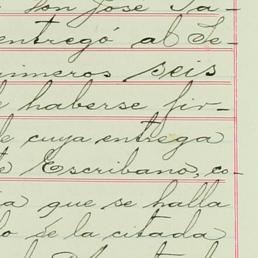 Don José Sa-
entregó al Se-
primeros seis
e haberse fir-
de cuya entrega
te Escribano, co-
que se halla
lo de la citada